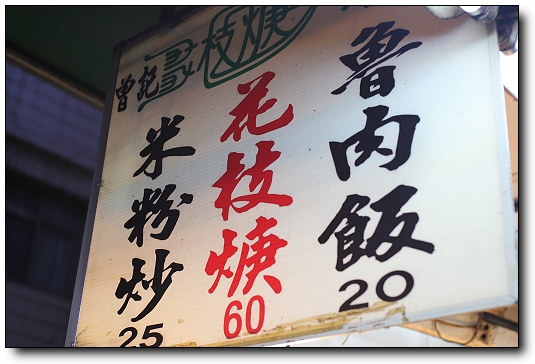 曾記
枝焿
魯肉飯
20
花枝焿
60
米粉炒
25